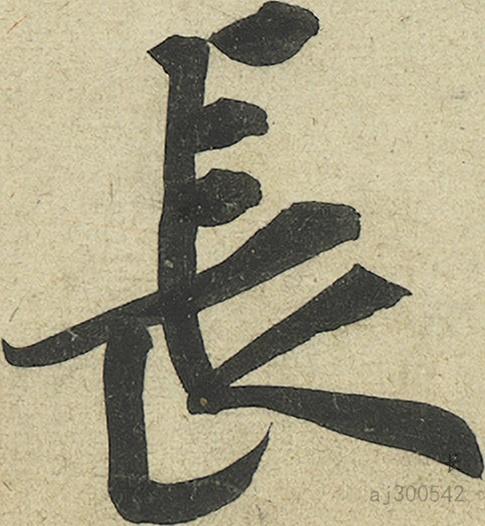 長
aj300542